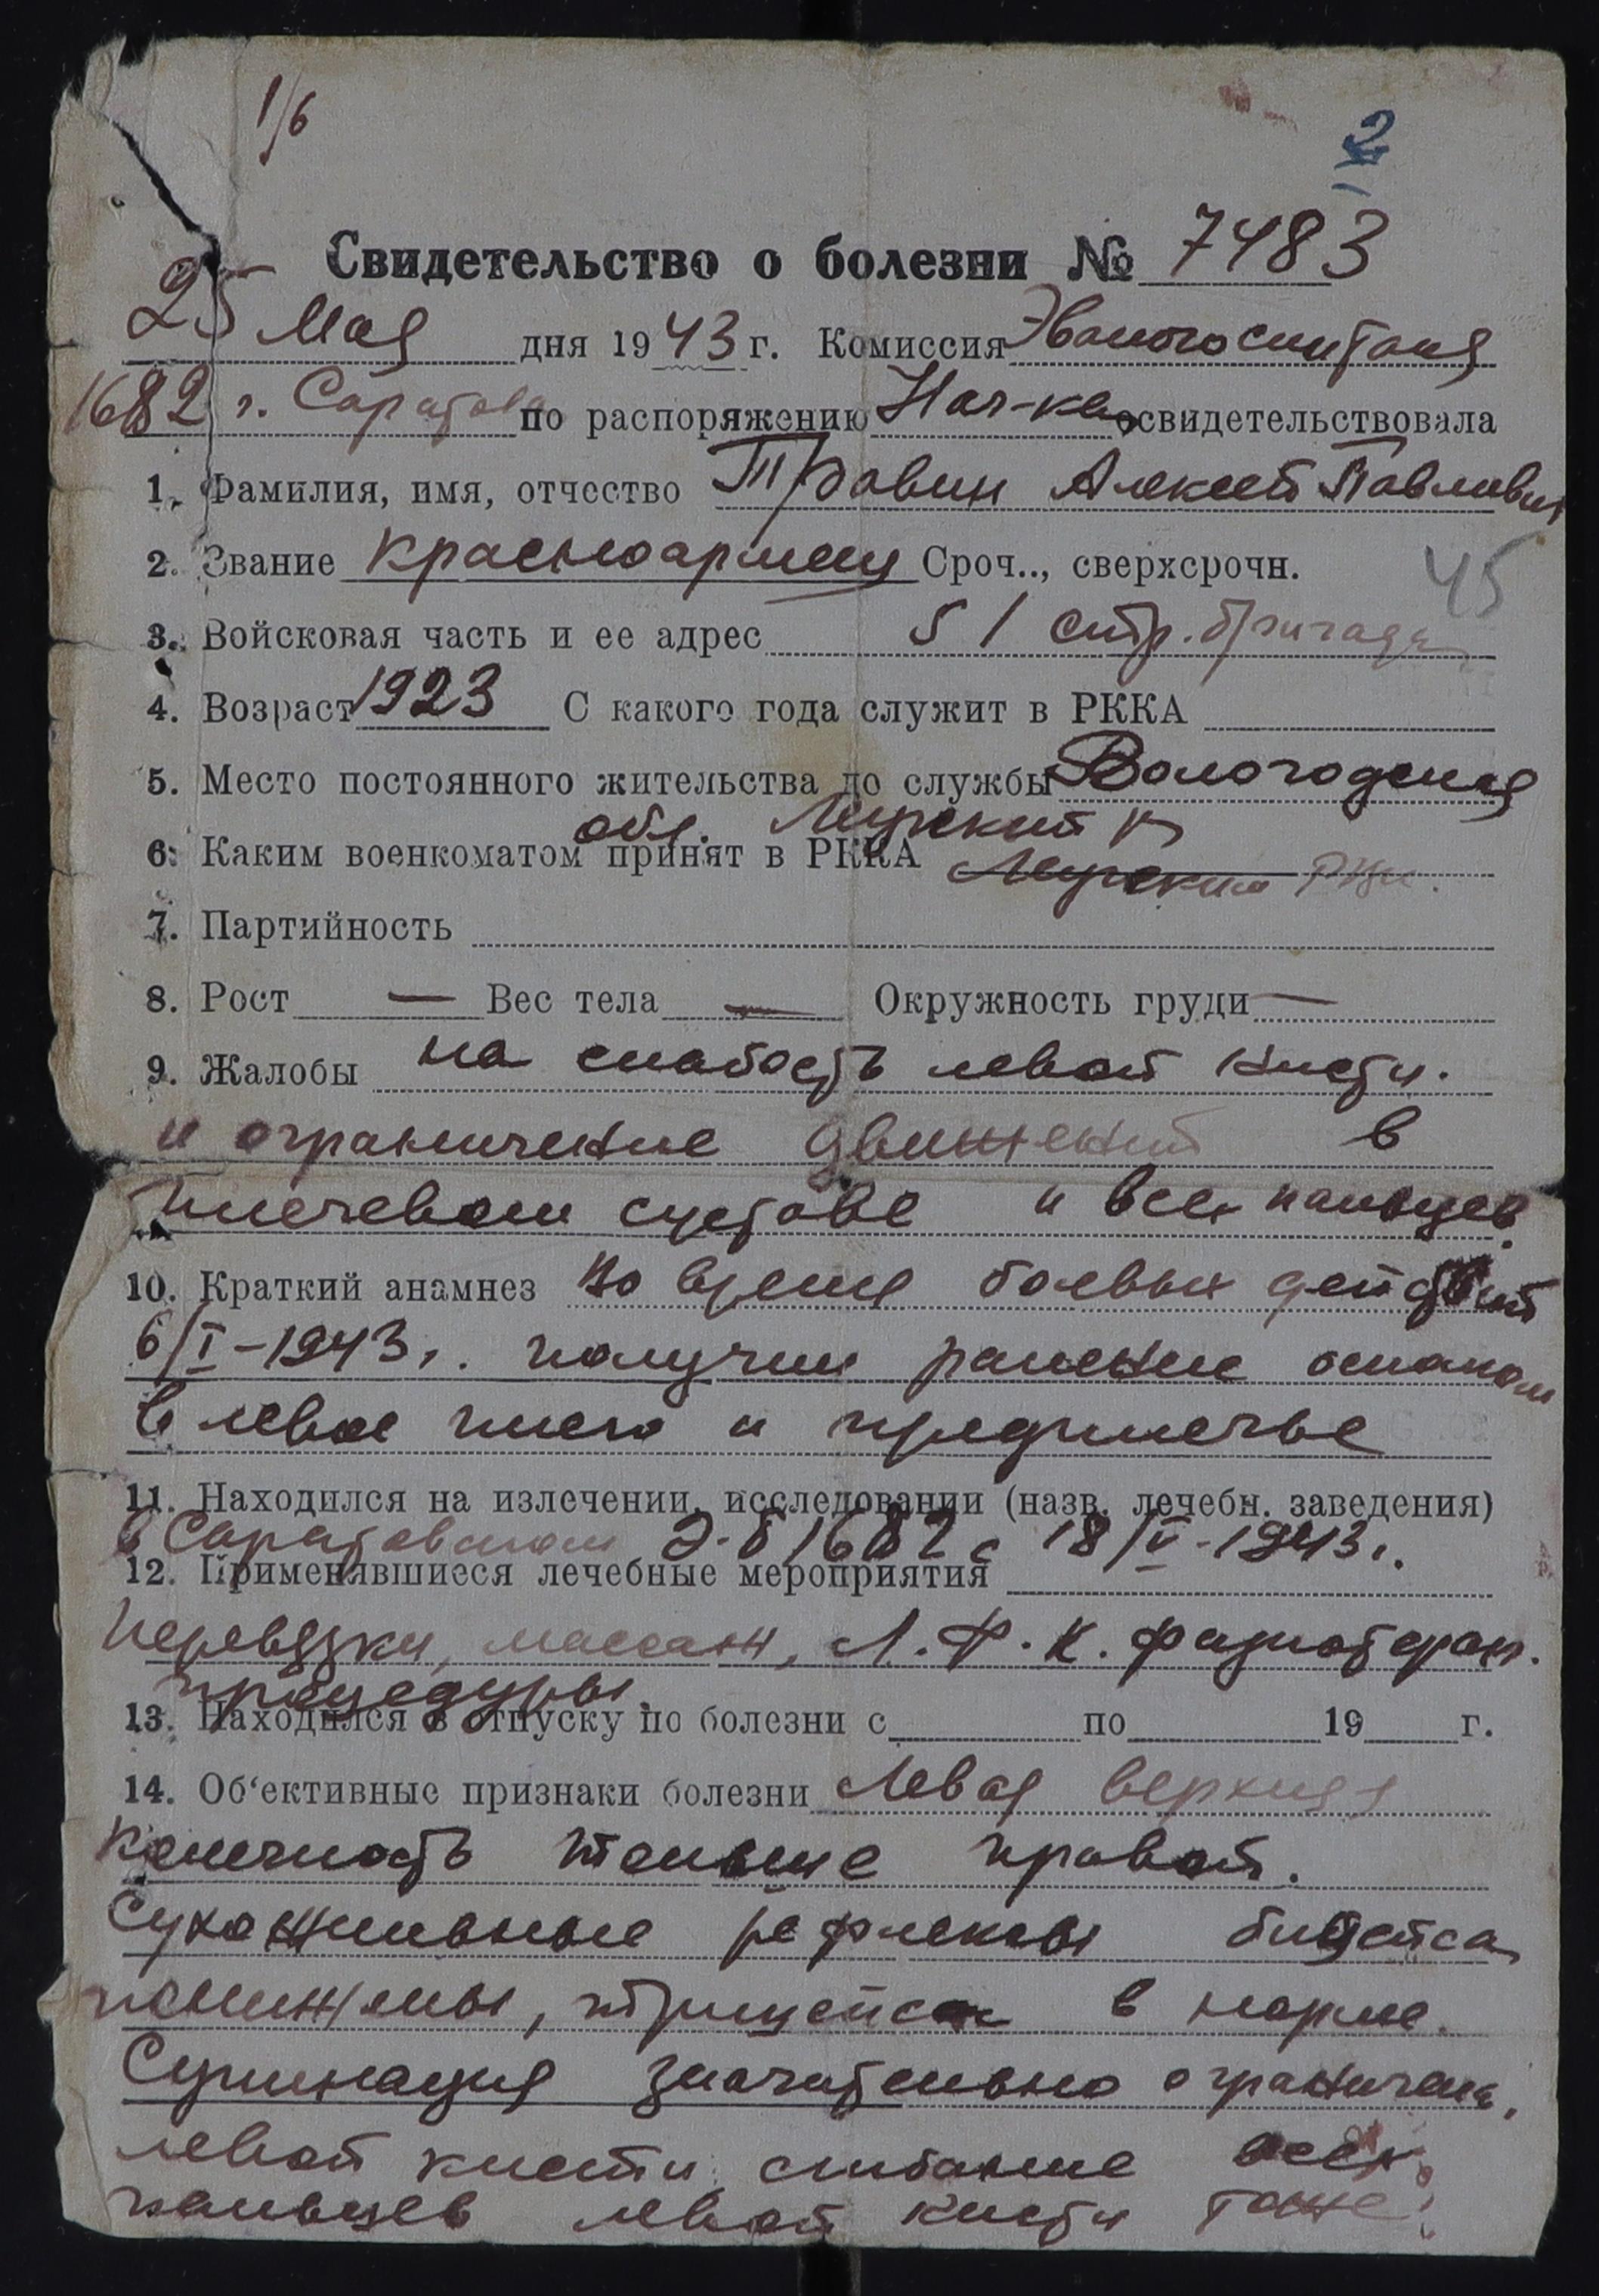 1/6
2
Свидетельство о болезни № 7483
25 Мая дня 1943 г. Комиссия Эвакогоспиталя
1682 г. Саратова по распоряжению Нач-ка освидетельствовала
1. Фамилия, имя, отчество Травин Алексей Павлович
2. Звание красноармеец Сроч.., сверхсрочн.
45
3. Войсковая часть и ее адрес 51 стр. бригада
4. Возраст 1923 С какого года служит в РККА
5. Место постоянного жительства до службы Вологодская
обл.
6. Каким военкоматом принят в РККА
7. Партийность
8. Рост — Вес тела — Окружность груди —
9. Жалобы на слабость левой кисти.
и ограничение движений в
плечевом суставе и всех пальцев.
10. Краткий анамнез Во время боевых действий
6/I-1943г. получил ранение осколком
в левое плечо и предплечье
11. Находился на излечении, исследовании (назв. лечебн. заведения)
в Саратовском Э-Г 1682 с 18/V-1943г.
12. Применявшиеся лечебные мероприятия
Перевязки, массаж, Л.Ф.К. физиотерап.
процедуры.
13. Находился в отпуску по болезни с по 19 г.
14. Об‘ективные признаки болезни Левая верхняя
конечность тоньше правой.
Сухожильные рефлексы бицепса
понижены, трицепса в норме.
Супинация значительно ограничена,
левой кисти, сгибание всех
пальцев левой кисти тоже.